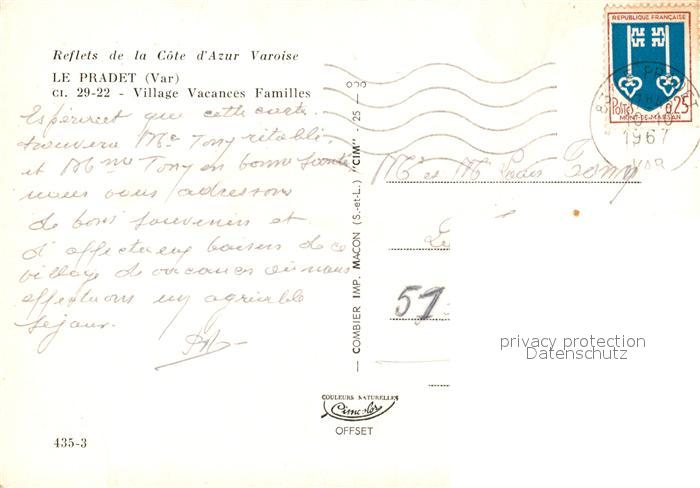 Reflets de la Côte d'Azur Varoise
LE PRADET (Var)
CI. 29-22 - Village Vacances Familles
que cette carte
trouvera Mr Tony rétabli,
et Mme Tony en bonne santé
nous vous adressons
de bons souvenirs et
d'affectueux baisers de ce
village de vacances où nous
effectuons un agréable
séjour.
— COMBIER IMP. MACON (S.-et-L.) "CIM" - 25 -
REPUBLIQUE FRANÇAISE
POSTES 0,25
MONT-DE-MARSAN
1967
VAR
Mr et Me Tony
51
privacy protection
Datenschutz
COULEURS NATURELLES
Cimcolor
OFFSET
435-3